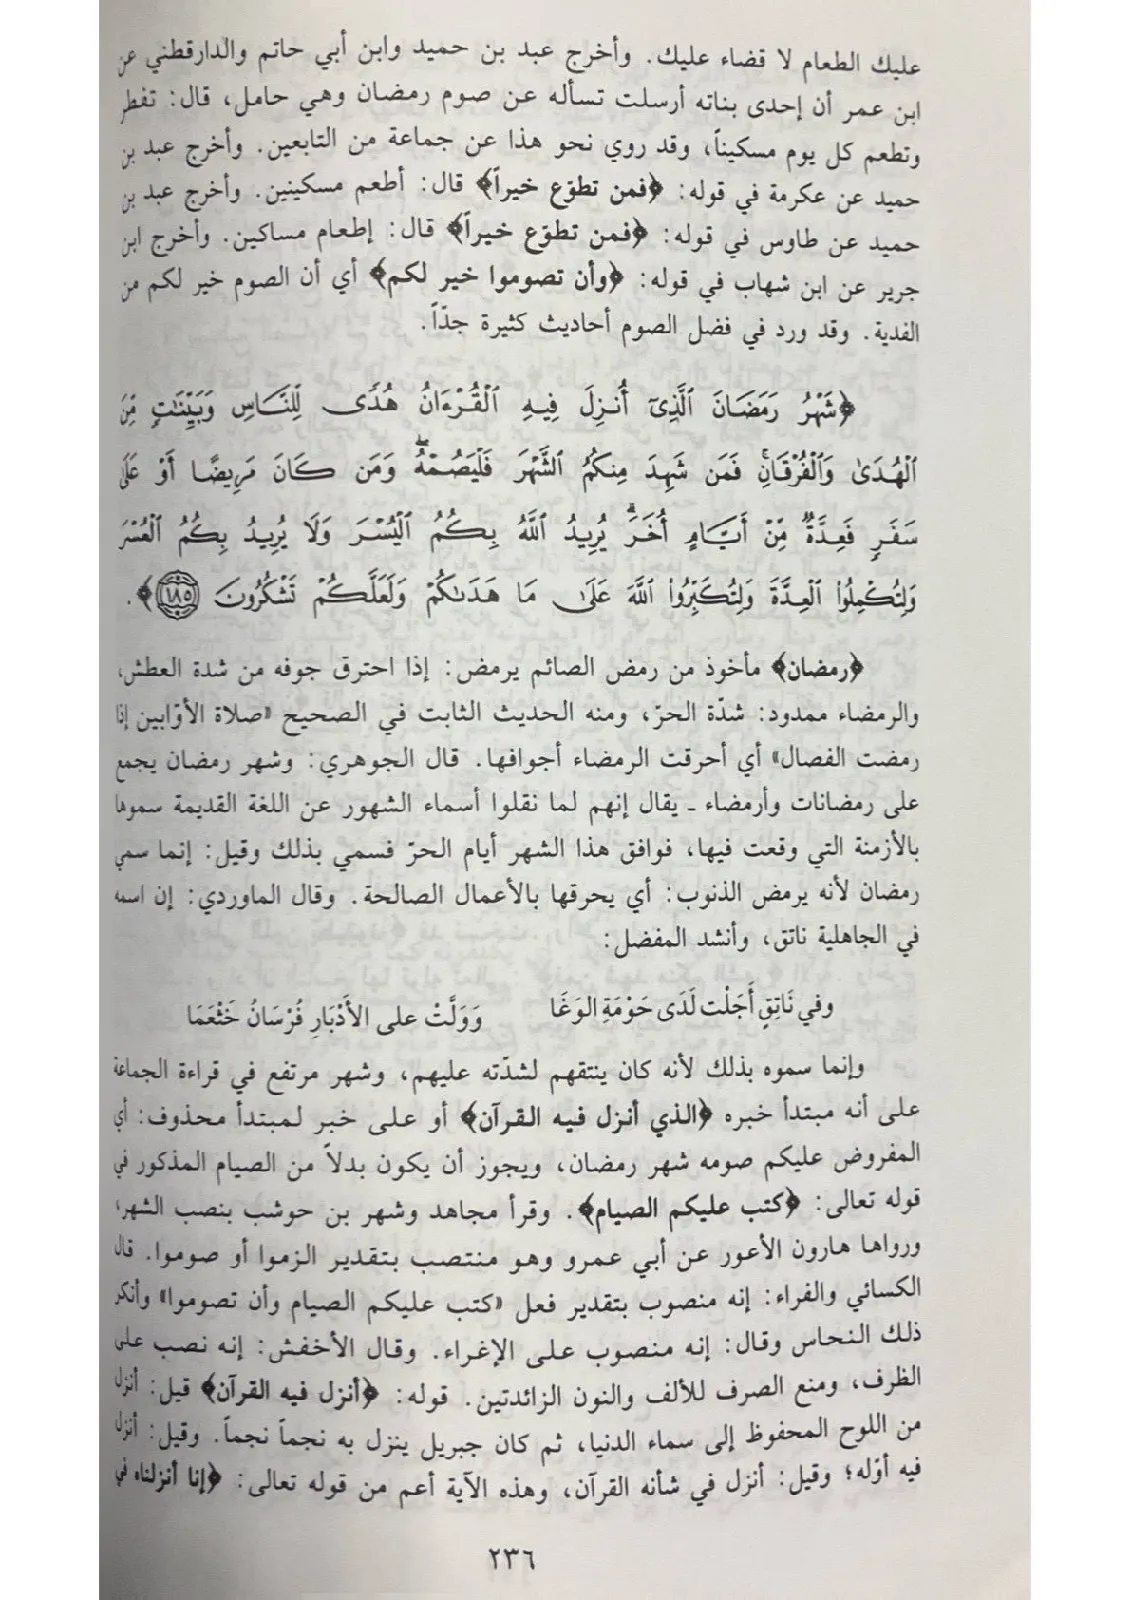 عليك الطعام لا قضاء عليك. وأخرج عبد بن حميد وابن أبي حاتم والدارقطني عن
ابن عمر أن إحدى بناته أرسلت تسأله عن صوم رمضان وهي حامل، قال: تفطر
وتطعم كل يوم مسكيناً، وقد روي نحو هذا عن جماعة من التابعين. وأخرج عبد بن
حميد عن عكرمة في قوله: ﴿فمن تطوّع خيراً﴾ قال: أطعم مسكينين. وأخرج عبد بن
حميد عن طاوس في قوله: ﴿فمن تطوّع خيراً﴾ قال: إطعام مساكين. وأخرج ابن
جرير عن ابن شهاب في قوله: ﴿وأن تصوموا خير لكم﴾ أي أن الصوم خير لكم من
الفدية. وقد ورد في فضل الصوم أحاديث كثيرة جدّاً.
﴿شَهْرُ رَمَضَانَ الَّذِىٓ أُنزِلَ فِيهِ الْقُرْءَانُ هُدًى لِّلنَّاسِ وَبَيِّنَٰتٍ مِّنَ
الْهُدَىٰ وَالْفُرْقَانِۚ فَمَن شَهِدَ مِنكُمُ الشَّهْرَ فَلْيَصُمْهُۖ وَمَن كَانَ مَرِيضًا أَوْ عَلَىٰ
سَفَرٍ فَعِدَّةٌ مِّنْ أَيَّامٍ أُخَرَۗ يُرِيدُ اللَّهُ بِكُمُ الْيُسْرَ وَلَا يُرِيدُ بِكُمُ الْعُسْرَ
وَلِتُكْمِلُوا۟ الْعِدَّةَ وَلِتُكَبِّرُوا۟ اللَّهَ عَلَىٰ مَا هَدَىٰكُمْ وَلَعَلَّكُمْ تَشْكُرُونَ ١٨٥﴾.
﴿رمضان﴾ مأخوذ من رمض الصائم يرمض: إذا احترق جوفه من شدة العطش،
والرمضاء ممدود: شدّة الحرّ، ومنه الحديث الثابت في الصحيح «صلاة الأوّابين إذا
رمضت الفصال» أي أحرقت الرمضاء أجوافها. قال الجوهري: وشهر رمضان يجمع
على رمضانات وأرمضاء ـ يقال إنهم لما نقلوا أسماء الشهور عن اللغة القديمة سموها
بالأزمنة التي وقعت فيها، فوافق هذا الشهر أيام الحرّ فسمي بذلك وقيل: إنما سمي
رمضان لأنه يرمض الذنوب: أي يحرقها بالأعمال الصالحة. وقال الماوردي: إن اسمه
في الجاهلية ناتق، وأنشد المفضل:
وفي نَاتِقٍ أَجَلْت لَدَى حَوْمَةِ الوَغَا وَوَلَّتْ على الأدْبَارِ فُرْسَانُ خَثْعَمَا
وإنما سموه بذلك لأنه كان ينتقهم لشدّته عليهم، وشهر مرتفع في قراءة الجماعة
على أنه مبتدأ خبره ﴿الذي أنزل فيه القرآن﴾ أو على خبر لمبتدأ محذوف: أي
المفروض عليكم صومه شهر رمضان، ويجوز أن يكون بدلاً من الصيام المذكور في
قوله تعالى: ﴿كتب عليكم الصيام﴾. وقرأ مجاهد وشهر بن حوشب بنصب الشهر،
ورواها هارون الأعور عن أبي عمرو وهو منتصب بتقدير الزموا أو صوموا. قال
الكسائي والفراء: إنه منصوب بتقدير فعل «كتب عليكم الصيام وأن تصوموا» وأنكر
ذلك النحاس وقال: إنه منصوب على الإغراء. وقال الأخفش: إنه نصب على
الظرف، ومنع الصرف للألف والنون الزائدتين. قوله: ﴿أنزل فيه القرآن﴾ قيل: أنزل
من اللوح المحفوظ إلى سماء الدنيا، ثم كان جبريل ينزل به نجماً نجماً. وقيل: أنزل
فيه أوّله؛ وقيل: أنزل في شأنه القرآن، وهذه الآية أعم من قوله تعالى: ﴿إنا أنزلناه في
٢٣٦